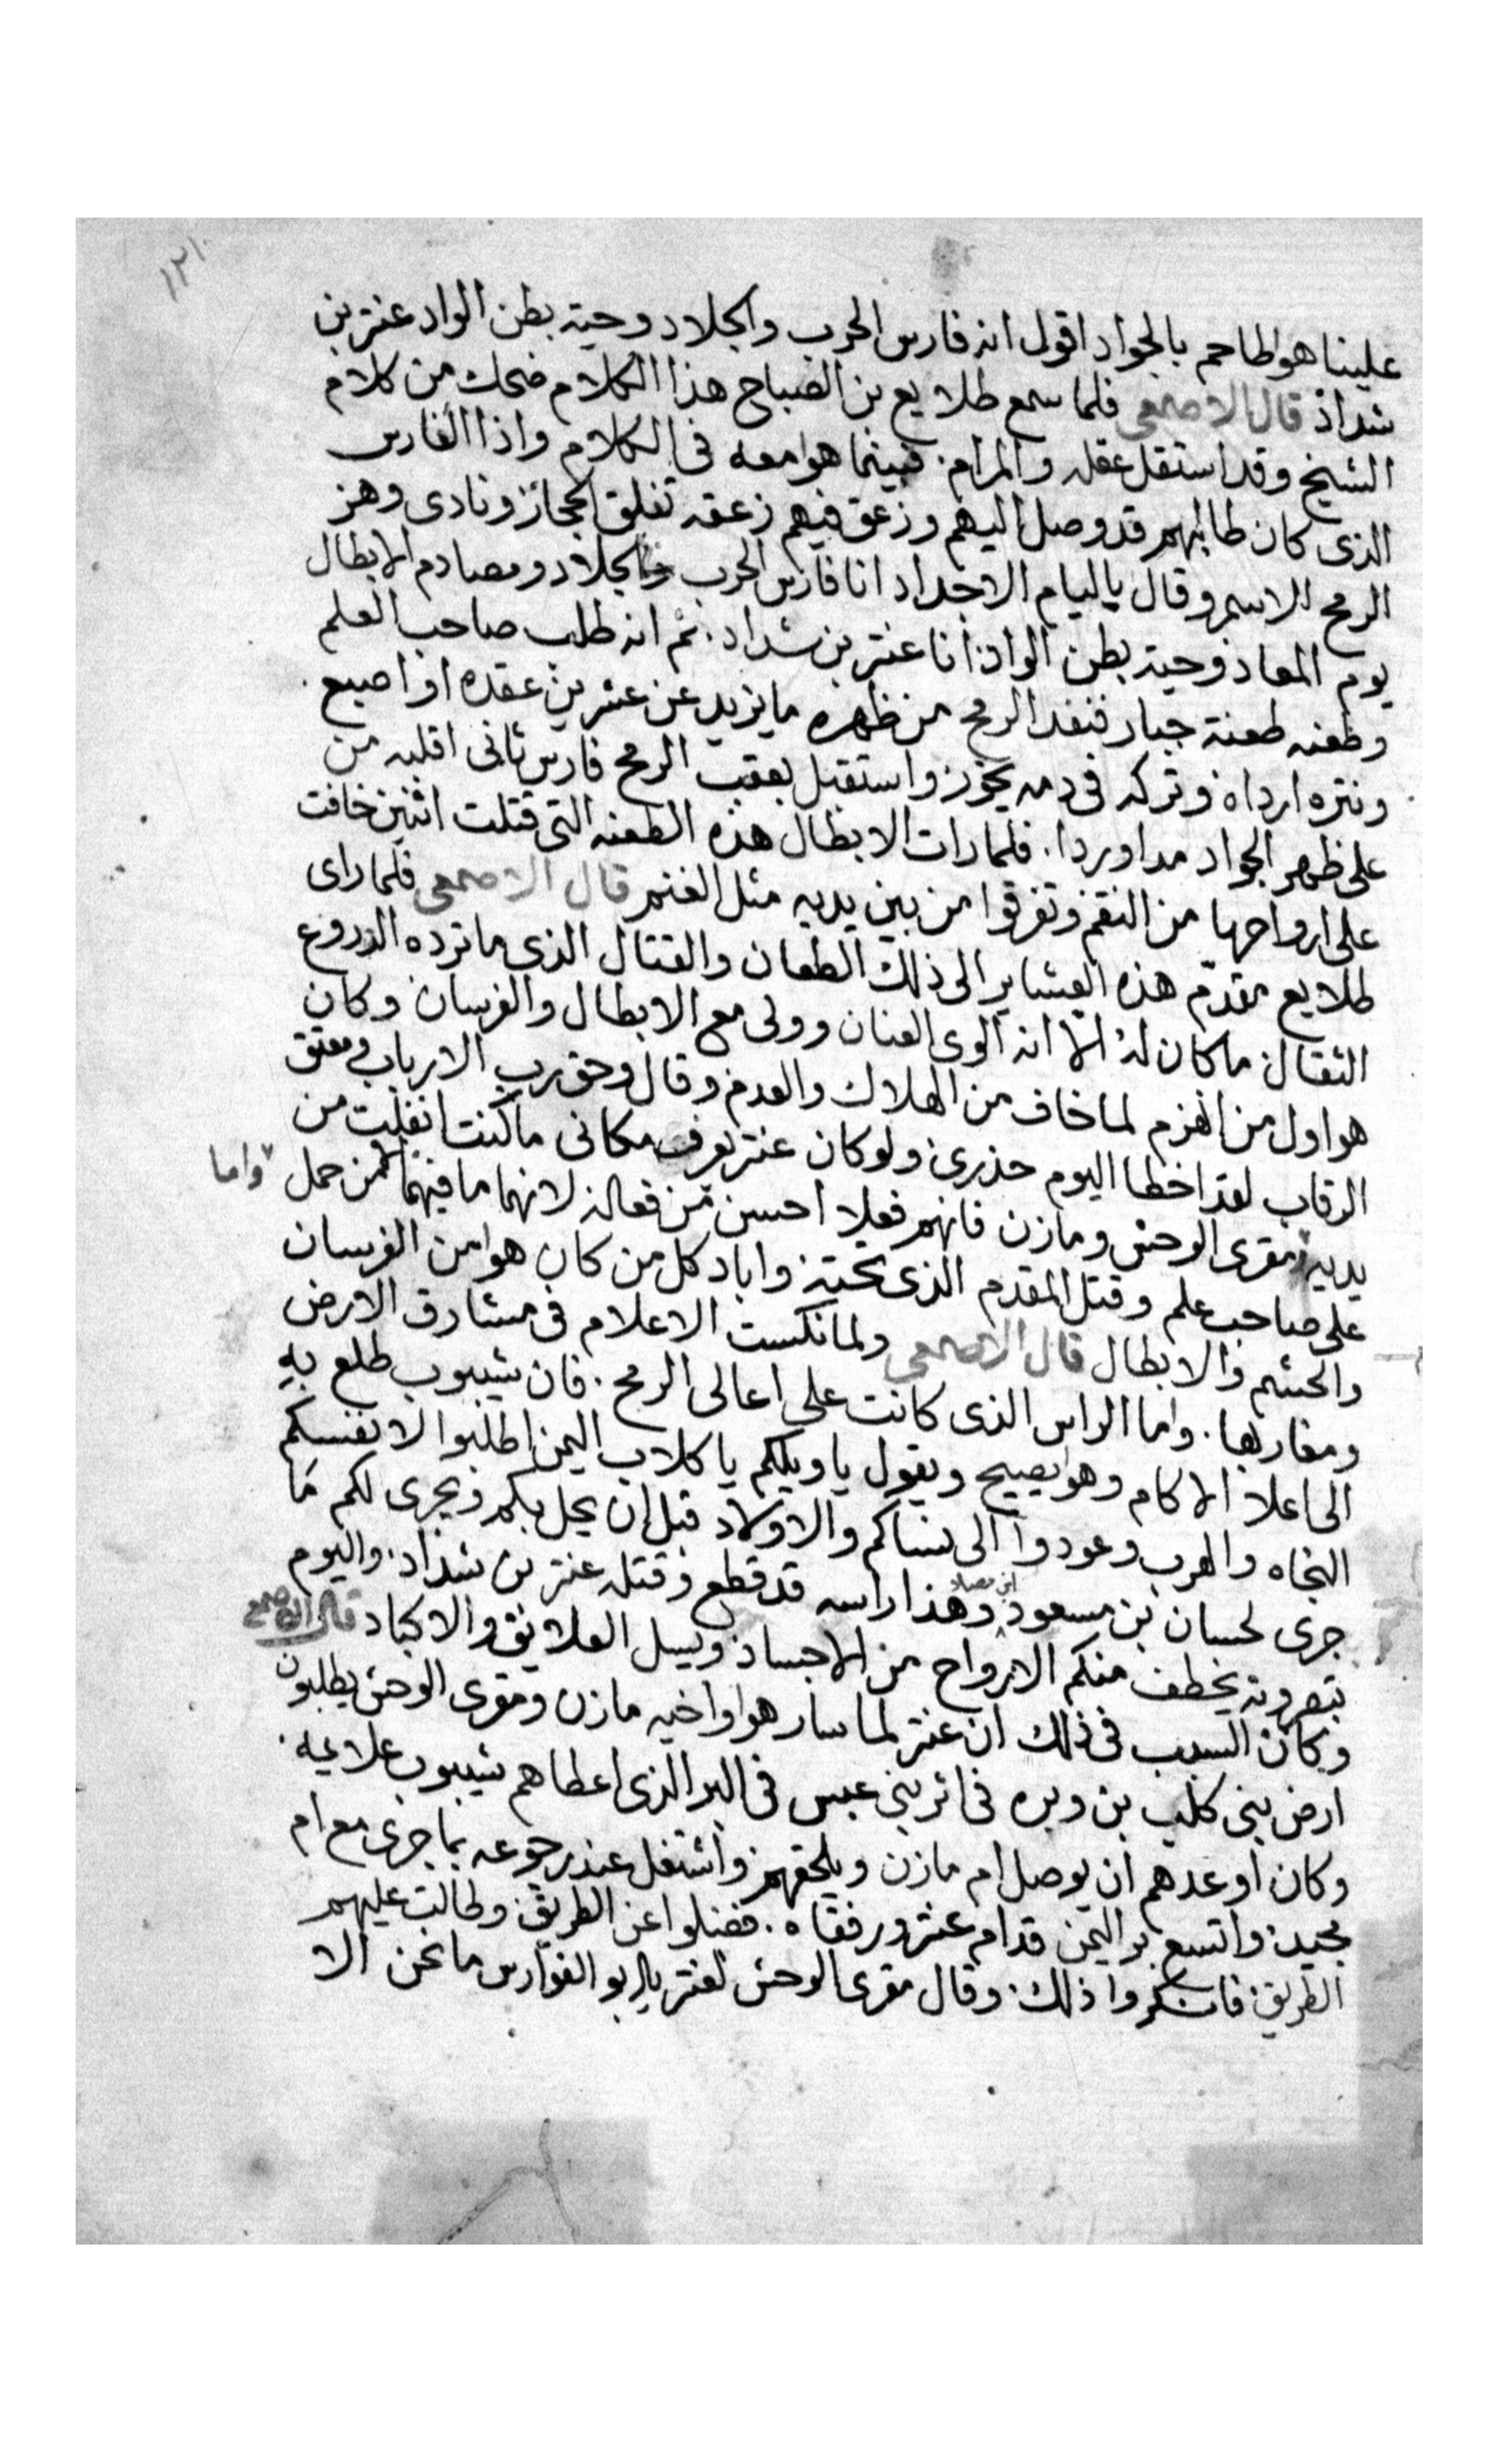 ١٢١
علينا هو اطاحم بالجواد اقول انه فارس الحرب والجلاد وحية بطن الواد عنتر بن
شداد قال الاصمعى فلما سمع طلايع بن الصباح هذا الكلام ضحك من كلام
الشيخ وقد استقل عقله والمرام. فبينما هو امعه فى الكلام واذا الفارس
الذى كان طالبهم قد وصل اليهم وزعق فيهم زعقه تفلق الحجاز ونادى وهز
الرمح الاسمر وقال ياليام الاجداد انا فارس الحرب والجلاد ومصادم الابطال
يوم المعاد وحية بطن الواد انا عنتر بن شداد. ثم انه طلب صاحب العلم
وطعنه طعنة جبار فنفد الرمح من ظهره ما يزيد عن عشرين عقده او اصبع.
ونتره ارداه وتركه فى دمه يخور واستقبل بعقب الرمح فارس ثانى اقلبه من
على ظهر الجواد مداوردا. فلما رات الابطال هذه الطعنه التى قتلت اثنين خافت
على ارواحها من النقم وتفرقوا من بين يديه مثل الغنم قال الاصمعى فلما راى
طلايع مقدم هذه العشاير الى ذلك الطعان والقتال الذى ما ترده الدروع
الثقال ما كان له الا انه الوى العنان وولى مع الابطال والفرسان وكان
هو اول من انهزم لما خاف من الهلاك والعدم وقال وحق رب الارباب ومعتق
الرقاب لقد اخطا اليوم حذرى ولو كان عنتر يعرف مكانى ما كنت انفلت من
يديه واما مقرى الوحش ومازن فانهم فعلا احسن من فعاله لانهما ما فيهما لمن حمل
على صاحب علم وقتل المقدم الذى تحته واباد كل من كان هو امن الفرسان
والحشم والابطال قال الاصمعى ولما نكست الاعلام فى مشارق الارض
ومغاربها. واما الراس الذى كانت على اعالى الرمح. فان شيبوب طلع به
الى اعلا الاكام وهو يصيح ويقول ياويلكم يا كلاب اليمن اطلبوا لانفسكم
النجاه والهرب وعودوا الى نساكم والاولاد قبل ان يحل بكم ويجرى لكم ما
جرى لحسان بن مسعود ابن مصاد وهذا راسه قد قطع وقتله عنتر بن شداد. واليوم
تبصرونه يخطف منكم الارواح من الاجساد ويسل العلايق والاكباد قال الاصمعى
وكان السبب فى ذلك ان عنتر لما سار هو اواخيه مازن ومقرى الوحش يطلبون
ارض بنى كلب بن وبره فى اثر بنى عبس فى البر الذى اعطاهم شيبوب علايمه.
وكان اوعدهم ان يوصل ام مازن ويلحقهم واشتغل عند رجوعه بما جرى مع ام
مجيد. واتسع بر اليمن قدام عنتر ورفقاه. فضلوا عن الطريق وطالت عليهم
الطريق فانكروا ذلك. وقال مقرى الوحش لعنتر يا ابو الفوارس ما نحن الا